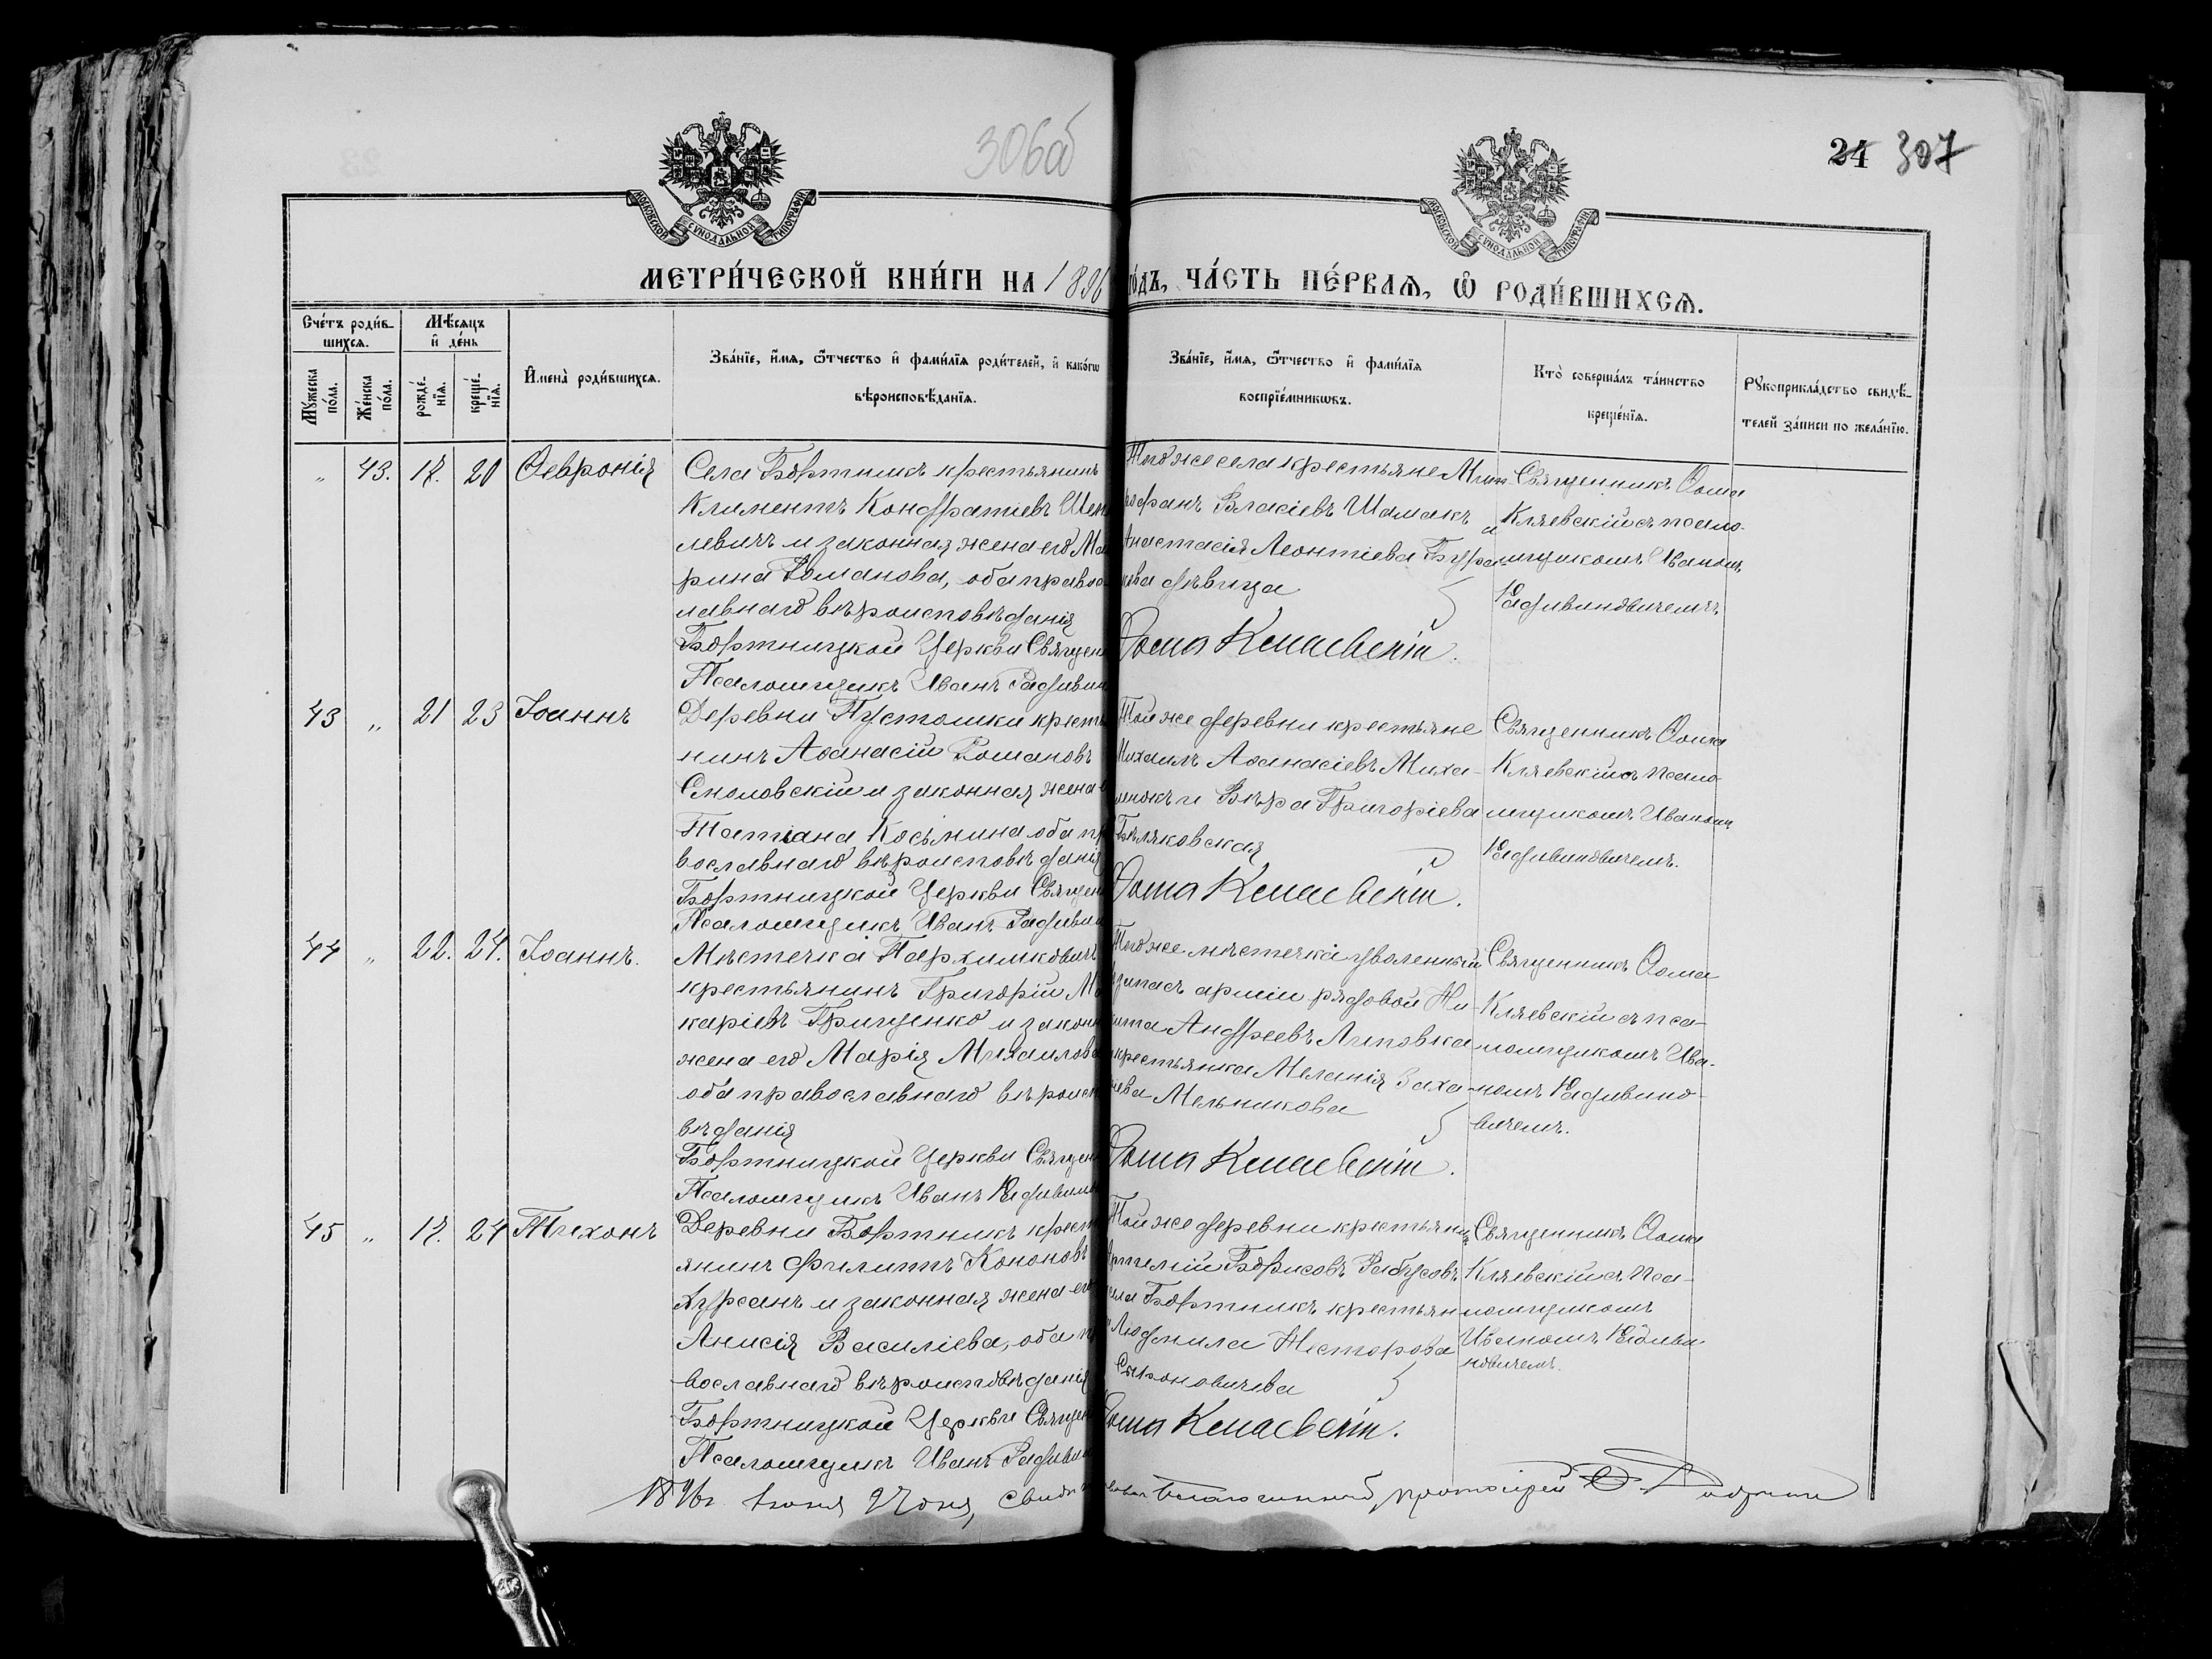 306об
24 307
МОСКОВСКОЙ СУНОДАЛЬНОЙ ТИПОГРАФІИ
МОСКОВСКОЙ СУНОДАЛЬНОЙ ТИПОГРАФІИ
МЕТРИ́ЧЕСКОЙ КНИ́ГИ НА 1896 го́дъ, ЧА́СТЬ ПЕ́РВАѦ, Ѡ҆ РОДИ́ВШИХСѦ.
Сче́тъ роди́вшихсѧ.
Мꙋ́жеска по́ла.
Же́нска по́ла.
Мѣ́сѧцъ и҆ де́нь
рожде́нїѧ.
креще́нїѧ.
И҆мена̀ роди́вшихсѧ.
Зва́нїе, и҆́мѧ, ѻ҆́тчество и҆ фами́лїѧ роди́телей, и҆ како́гѡ
вѣроисповѣ́данїѧ.
Зва́нїе, и҆́мѧ, ѻ҆́тчество и҆ фами́лїѧ
воспрїе́мникѡвъ.
Кто̀ соверша́лъ та́инство
креще́нїѧ.
Рꙋкоприкла́дство свидѣ́телей за́писи по жела́нїю.
„ 43. 17. 20 Ѳевронія
Села Бортникъ крестьянинъ
Климентъ Кондратіевъ
левичъ и законная жена его Ма
рина Романова, оба правос
лавнаго вѣроисповѣданія
Бортницкой Церкви Священ
Псаломщикъ Иванъ Радивин
Того же села крестьяне Ми
рофанъ Власіевъ Шамакъ и
Анастасія Леонтіева
кова дѣвица
Ѳома Кляевскій.
Священникъ Ѳома
Кляевскій съ псало-
мщикомъ Иваномъ
Радивиновичемъ.
43 „ 21 23 Іоаннъ
Деревни Пустошки кресть
нинъ Аѳанасій Романовъ
Смоловскій и законная жена е
Татіана Косьмина оба пр
вославнаго вѣроисповѣданія
Бортницкой Церкви Священ
Псаломщикъ Иванъ Радивин
Той же деревни крестьяне
Михаилъ Аѳанасіевъ Миха-
люкъ и Вѣра Григоріева
Бѣляковская
Ѳома Кляевскій.
Священникъ Ѳома
Кляевскій съ псало-
мщикомъ Иваномъ
Радивиновичемъ.
44 „ 22. 24. Іоаннъ.
Мѣстечка Пархимковичъ
крестьянинъ Григорій Ма
каріевъ Гриценко и законн
жена его Марія Михаилова
оба православнаго вѣроиспо
вѣданія
Бортницкой Церкви Священ
Псаломщикъ Иванъ Радивино
Того же мѣстечка уволенный
запасъ арміи рядовой Ни-
кита Андреевъ Липовка
крестьянка Меланія Заха-
ева Мельникова
Ѳома Кляевскій.
Священникъ Ѳома
Кляевскій съ пса-
ломщикомъ Ива-
номъ Радивино-
вичемъ.
45 „ 17. 24 Тихонъ
Деревни Бортникъ крест
янинъ Филиппъ Кононовъ
и законная жена его
Анисія Василіева, оба п
вославнаго вѣроисповѣданія
Бортницкой Церкви Священ
Псаломщикъ Иванъ Радивин
Той же деревни крестьянин
Борисовъ Рабусовъ
села Бортникъ крестьян
Людмила Несторова
Ѳома Кляевскій.
Священникъ Ѳома
Кляевскій съ пса-
ломщикомъ
Иваномъ Радиви-
новичемъ.
1896 г. Іюня 27 дня, Благочинный протоіерей